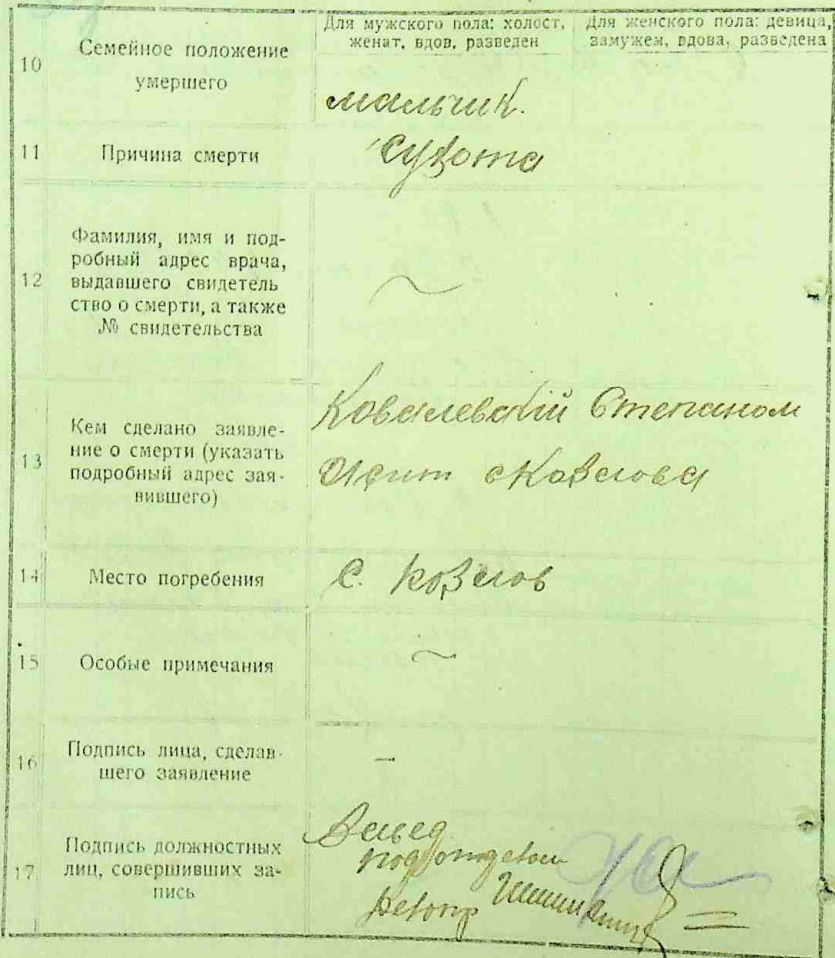 Для мужского пола: холост, женат, вдов, разведен
Для женского пола: девица, замужем, вдова, разведена
10
Семейное положение
умершего
мальчик.
11
Причина смерти
Сухота
12
Фамилия, имя и под-
робный адрес врача,
выдавшего свидетель
ство о смерти, а также
№ свидетельства
~
13
Кем сделано заявле-
ние о смерти (указать
подробный адрес зая-
вившего)
Ковалевский Степаном
14
Место погребения
С. Козлов
15
Особые примечания
~
16
Подпись лица, сделав-
шего заявление
–
17
Подпись должностных
лиц, совершивших за-
пись